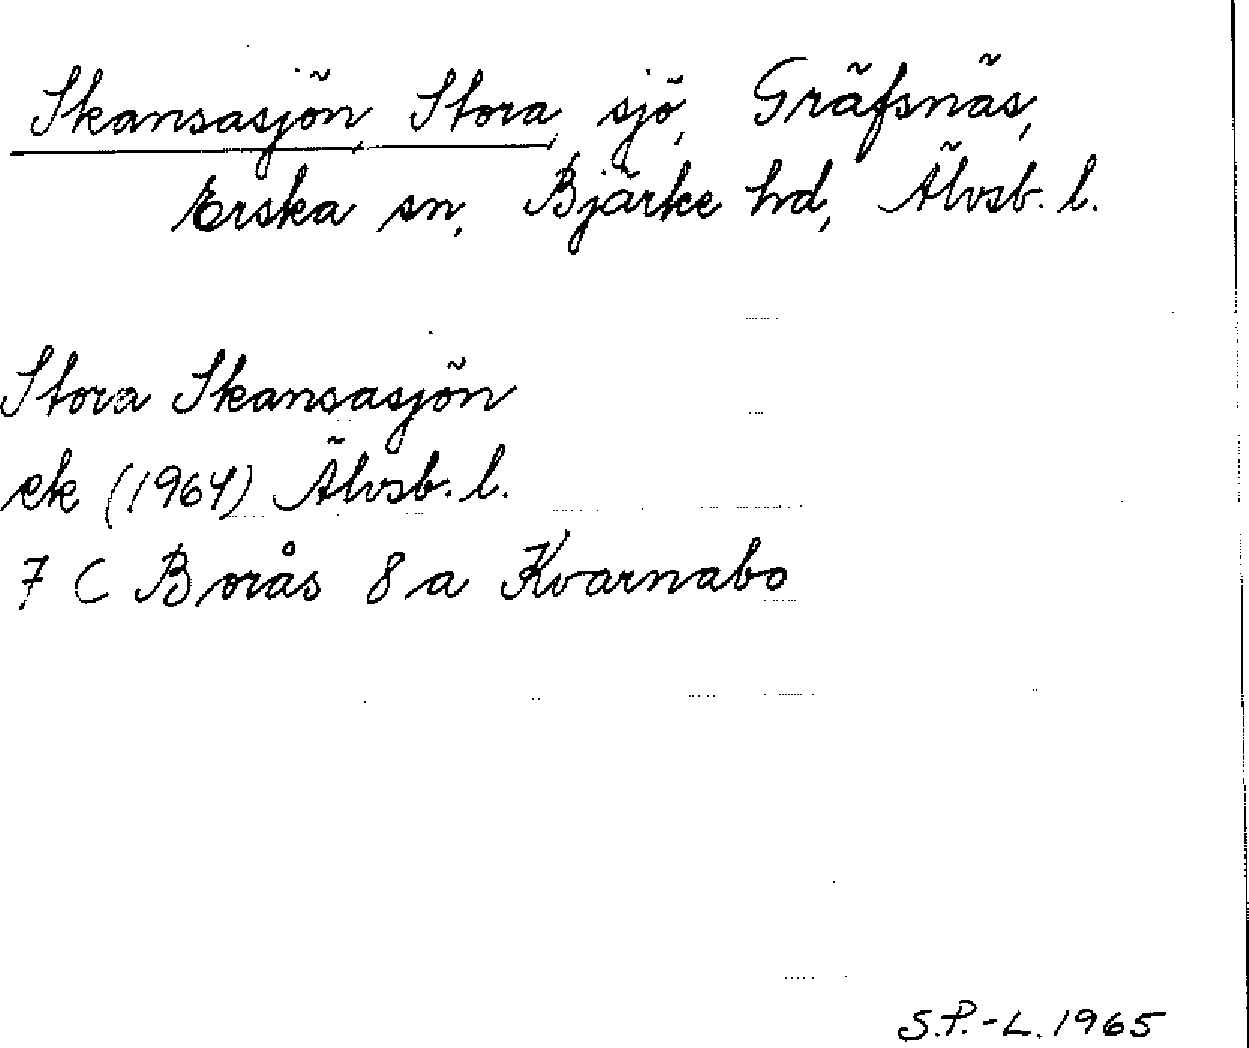 Skansasjön, Stora, sjö, Gräfsnäs,
Erska sn, Bjärke hd, Älvsb. l.
Stora Skansasjön
ek (1964) Älvsb. l.
7 C Borås 8 a Kvarnabo
S.P.-L. 1965